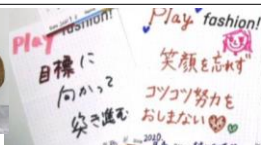 Play fashion!
目標に
向かって
突き進む
Play fashion!
笑顔を忘れず
コツコツ努力を
おしまない
2020